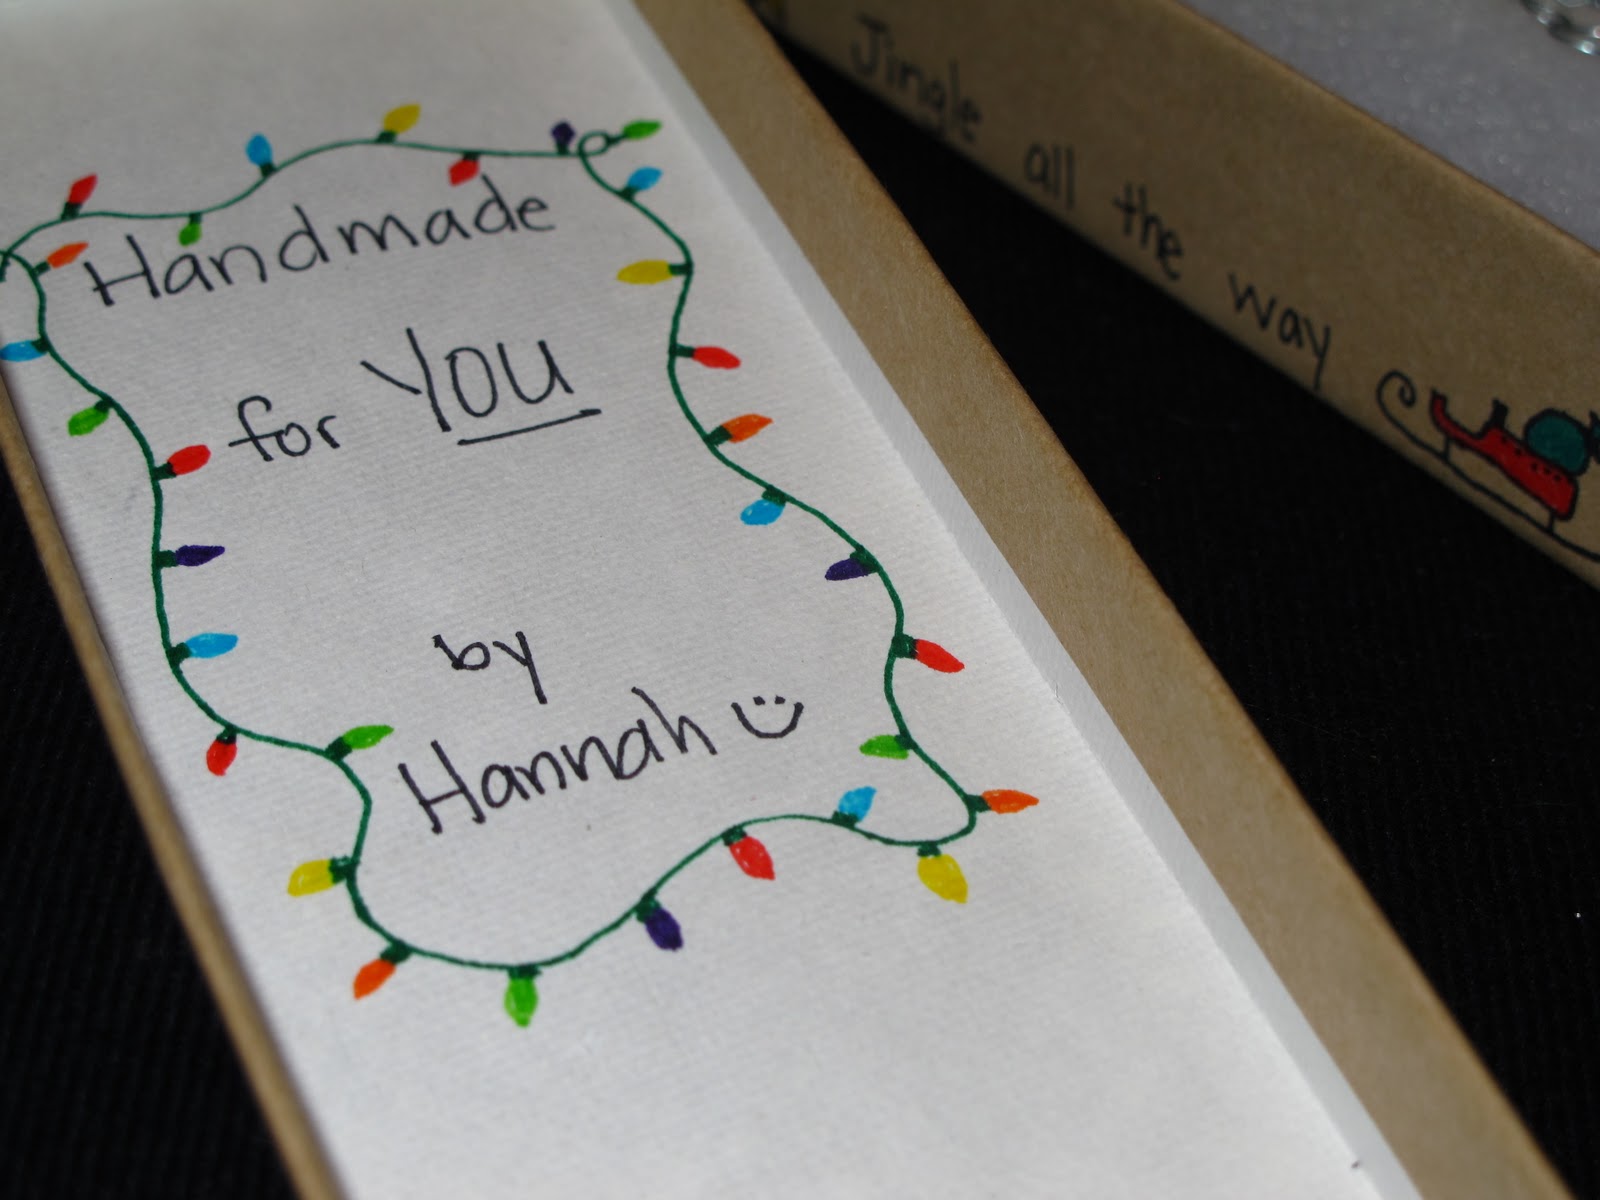 Handmade
for YOU
by
Hannah
Jingle all the way